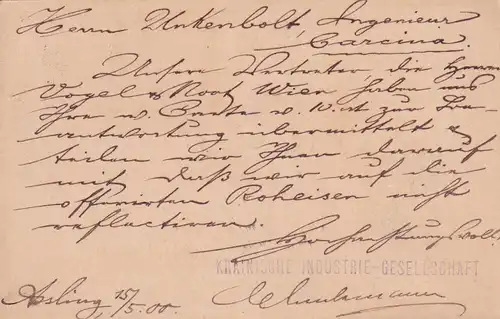 Herrn Unkenbolt, Ingenieur
Carcina.
Unsere Vertreter, die Herren
Vogel & Noot Wien haben uns
Ihre w. Carte v. 10. ct zur Be-
antwortung übermittelt &
teilen wir Ihnen darauf
mit, daß wir auf die
offerirten Roheisen nicht
reflectiren.
Hochachtungsvoll
KRAINISCHE INDUSTRIE-GESELLSCHAFT
Assling, 15/5.00.